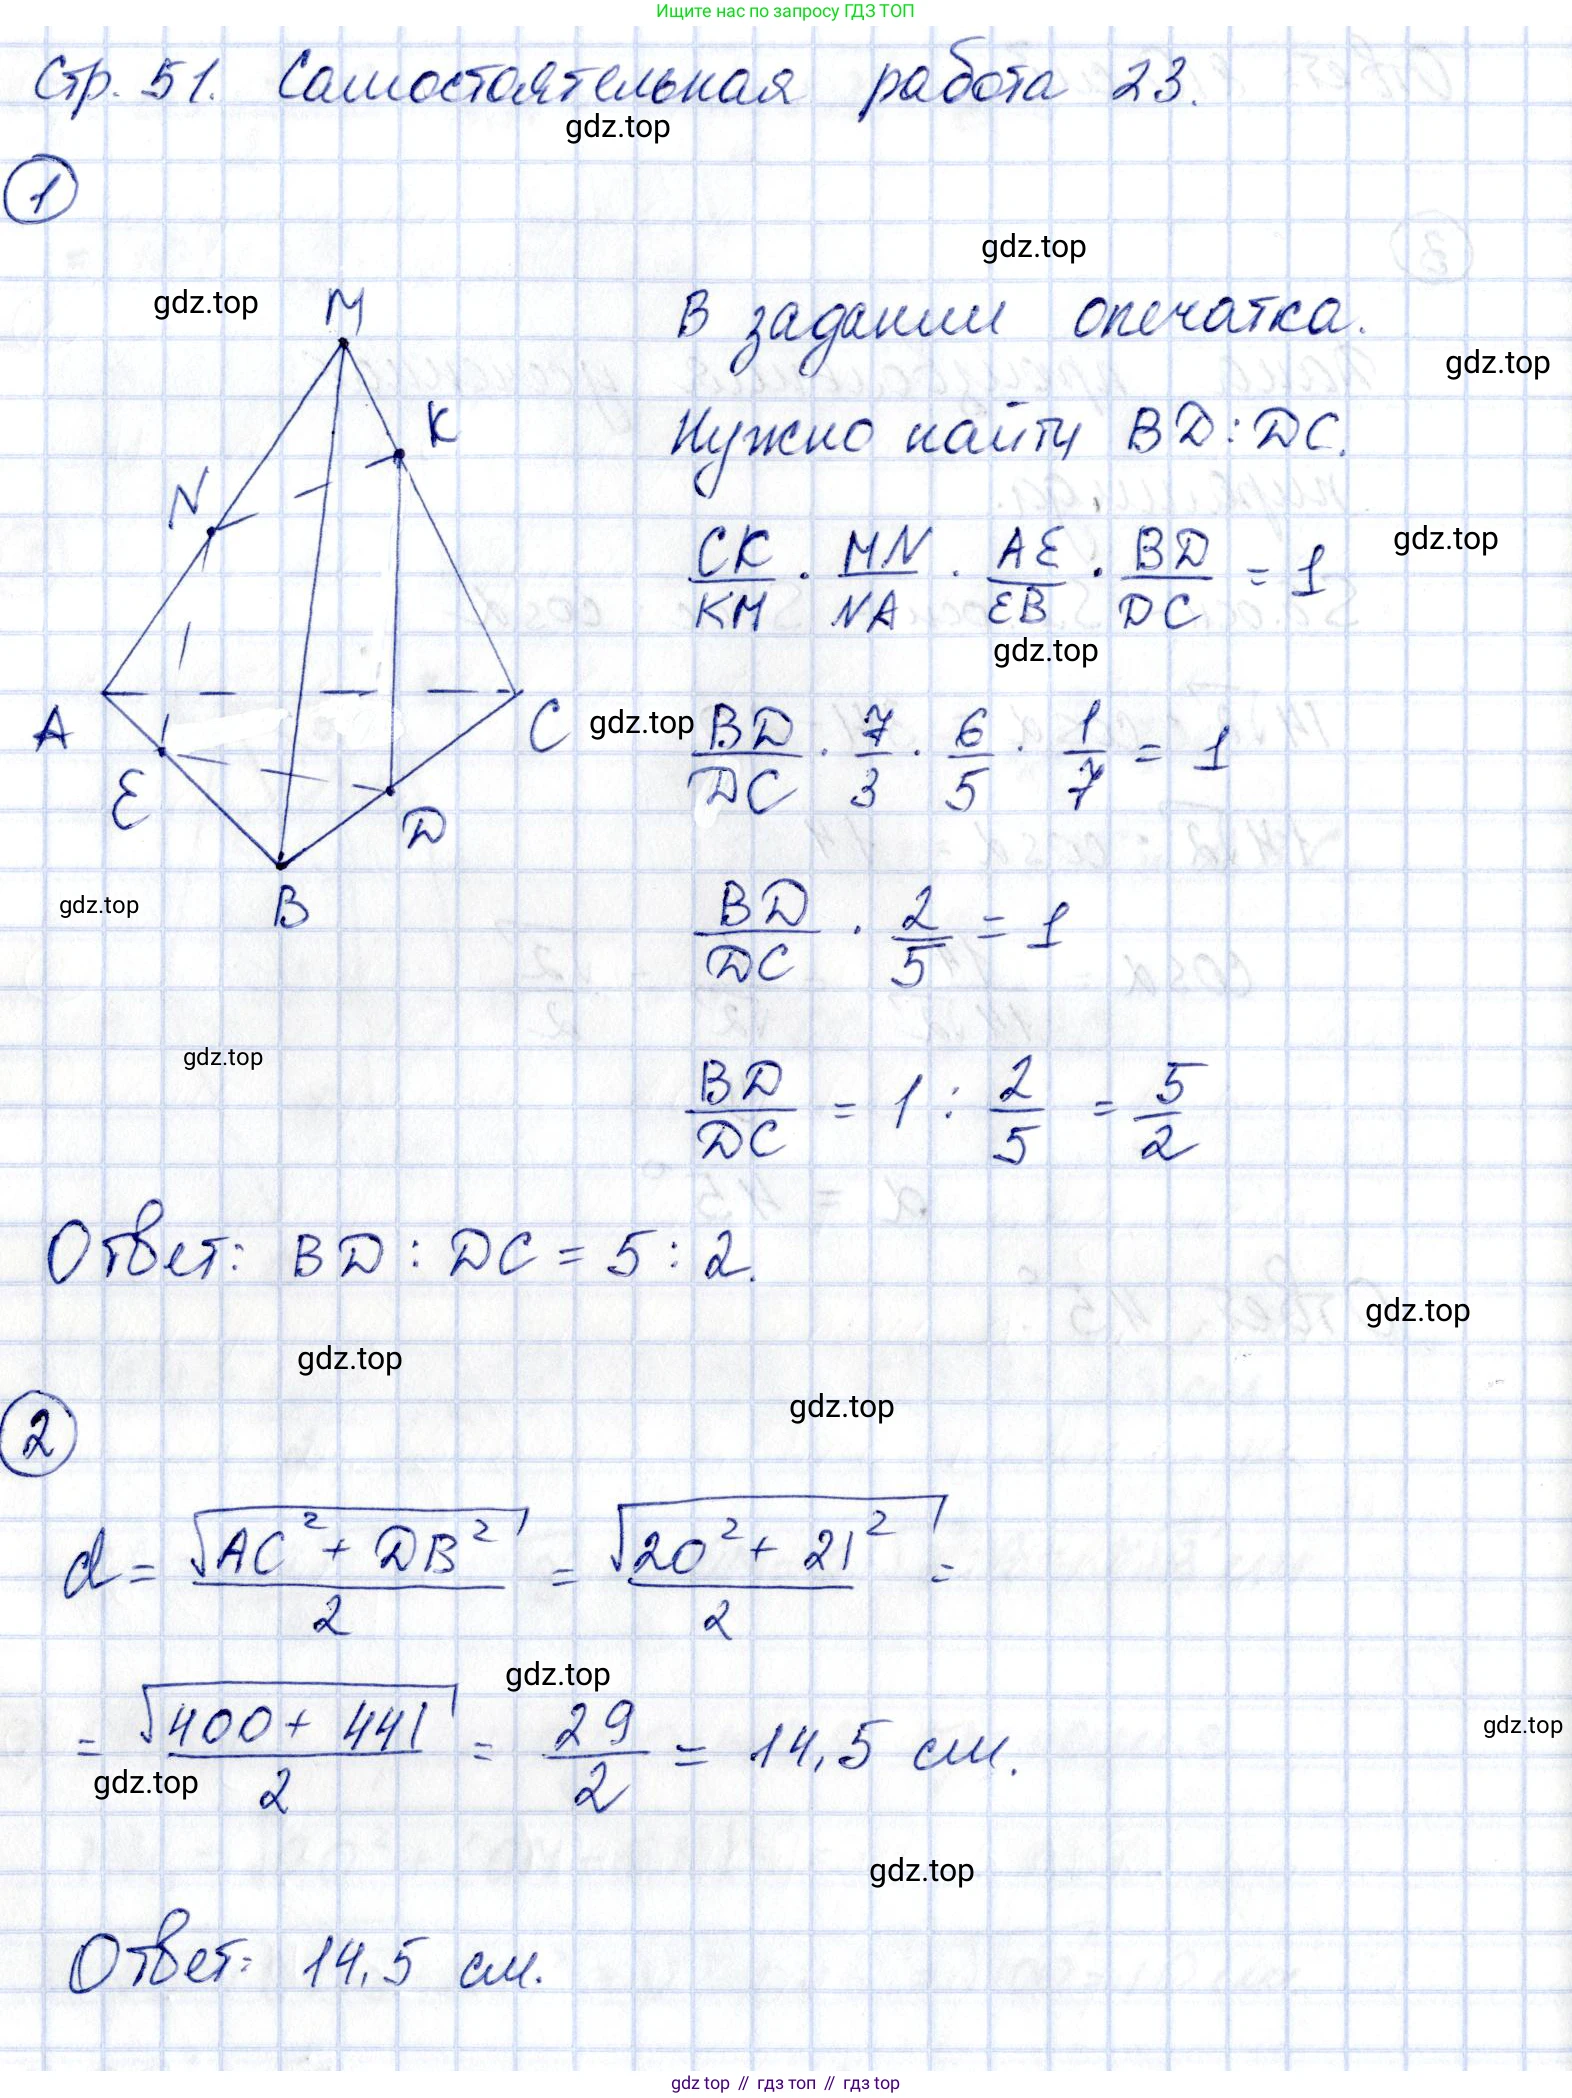 Ищите нас по запросу ГДЗ ТОП
Стр. 51. Самостоятельная работа 23.
gdz.top
1
gdz.top
gdz.top
M
В задании опечатка.
gdz.top
K
Нужно найти BD:DC.
N
CK/KM · MN/NA · AE/EB · BD/DC = 1
gdz.top
gdz.top
A
C
gdz.top
BD/DC · 7/3 · 6/5 · 1/7 = 1
E
D
BD/DC · 2/5 = 1
gdz.top
B
gdz.top
BD/DC = 1 : 2/5 = 5/2
Ответ: BD : DC = 5 : 2.
gdz.top
gdz.top
gdz.top
2
d = √AC² + DB² / 2 = √20² + 21² / 2 =
gdz.top
= √400 + 441 / 2 = 29/2 = 14,5 см.
gdz.top
gdz.top
gdz.top
Ответ: 14,5 см.
gdz top // гдз топ // гдз top